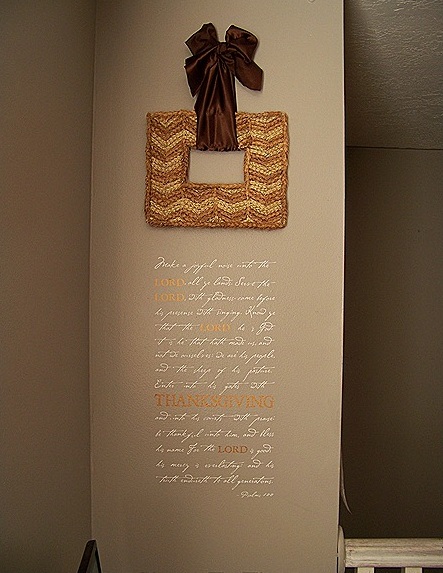 Make a joyful noise unto the
LORD, all ye lands. Serve the
LORD, with gladness: come before
his presence with singing. Know ye
that the LORD he is God
it is he that hath made us, and
not we ourselves; we are his people,
and the sheep of his pasture.
Enter into his gates with
THANKSGIVING
and into his courts with praise:
be thankful unto him, and bless
his name. For the LORD is good;
his mercy is everlasting; and his
truth endureth to all generations.
- Psalm 100